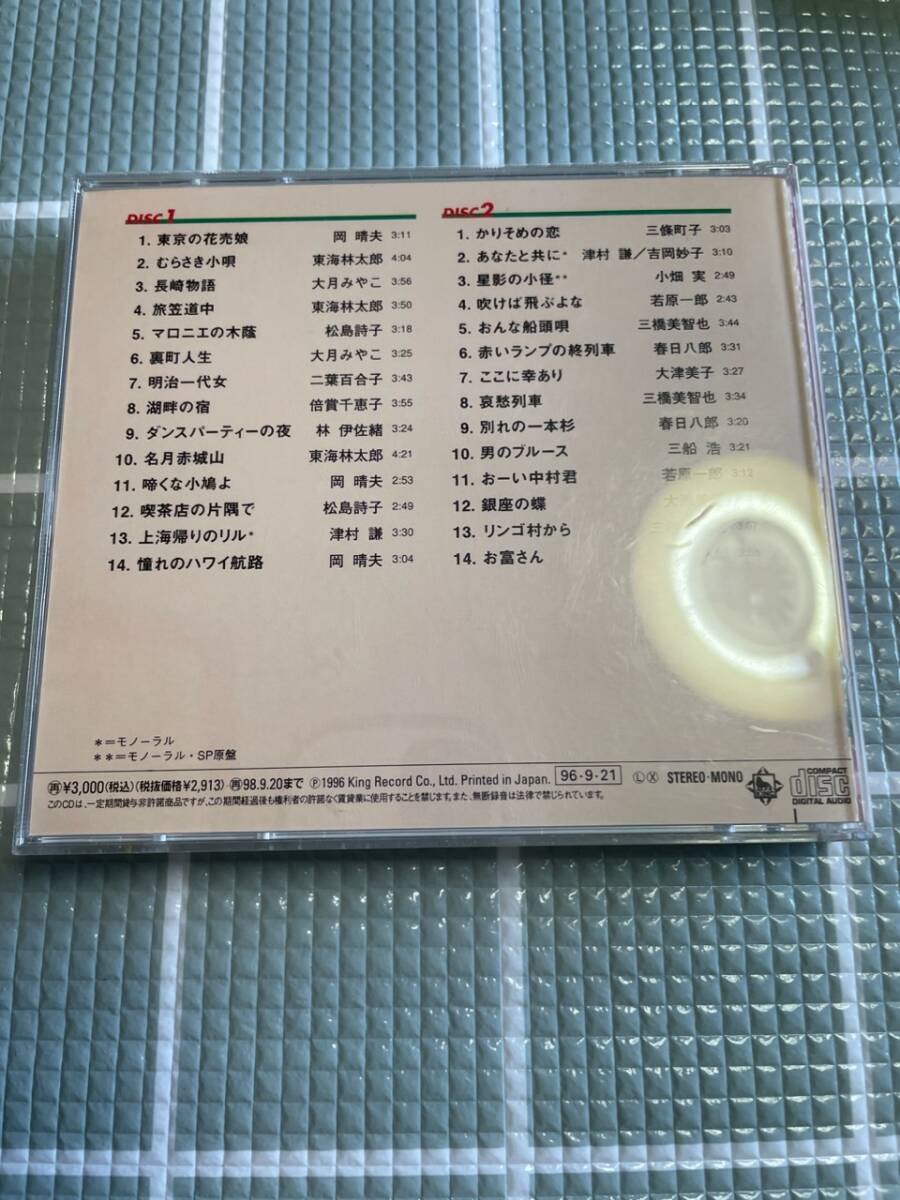 DISC1
1. 東京の花売娘 岡 晴夫 3:11
2. むらさき小唄 東海林太郎 4:04
3. 長崎物語 大月みやこ 3:56
4. 旅笠道中 東海林太郎 3:50
5. マロニエの木蔭 松島詩子 3:18
6. 裏町人生 大月みやこ 3:25
7. 明治一代女 二葉百合子 3:43
8. 湖畔の宿 倍賞千恵子 3:55
9. ダンスパーティーの夜 林 伊佐緒 3:24
10. 名月赤城山 東海林太郎 4:21
11. 啼くな小鳩よ 岡 晴夫 2:53
12. 喫茶店の片隅で 松島詩子 2:49
13. 上海帰りのリル* 津村 謙 3:30
14. 憧れのハワイ航路 岡 晴夫 3:04
DISC2
1. かりそめの恋 三條町子 3:03
2. あなたと共に* 津村 謙/吉岡妙子 3:10
3. 星影の小径** 小畑 実 2:49
4. 吹けば飛ぶよな 若原一郎 2:43
5. おんな船頭唄 三橋美智也 3:44
6. 赤いランプの終列車 春日八郎 3:31
7. ここに幸あり 大津美子 3:27
8. 哀愁列車 三橋美智也 3:34
9. 別れの一本杉 春日八郎 3:20
10. 男のブルース 三船 浩 3:21
11. おーい中村君 若原一郎 3:12
12. 銀座の蝶
13. リンゴ村から
14. お富さん
*=モノーラル
**=モノーラル・SP原盤
再¥3,000(税込)(税抜価格¥2,913) 再98.9.20まで Ⓟ1996 King Record Co., Ltd. Printed in Japan. 96・9・21 Ⓛ Ⓧ STEREO・MONO
このCDは、一定期間貸与非許諾商品ですが、この期間経過後も権利者の許諾なく賃貸業に使用することを禁じます。また、無断録音は法律で禁じられています。
COMPACT
disc
DIGITAL AUDIO